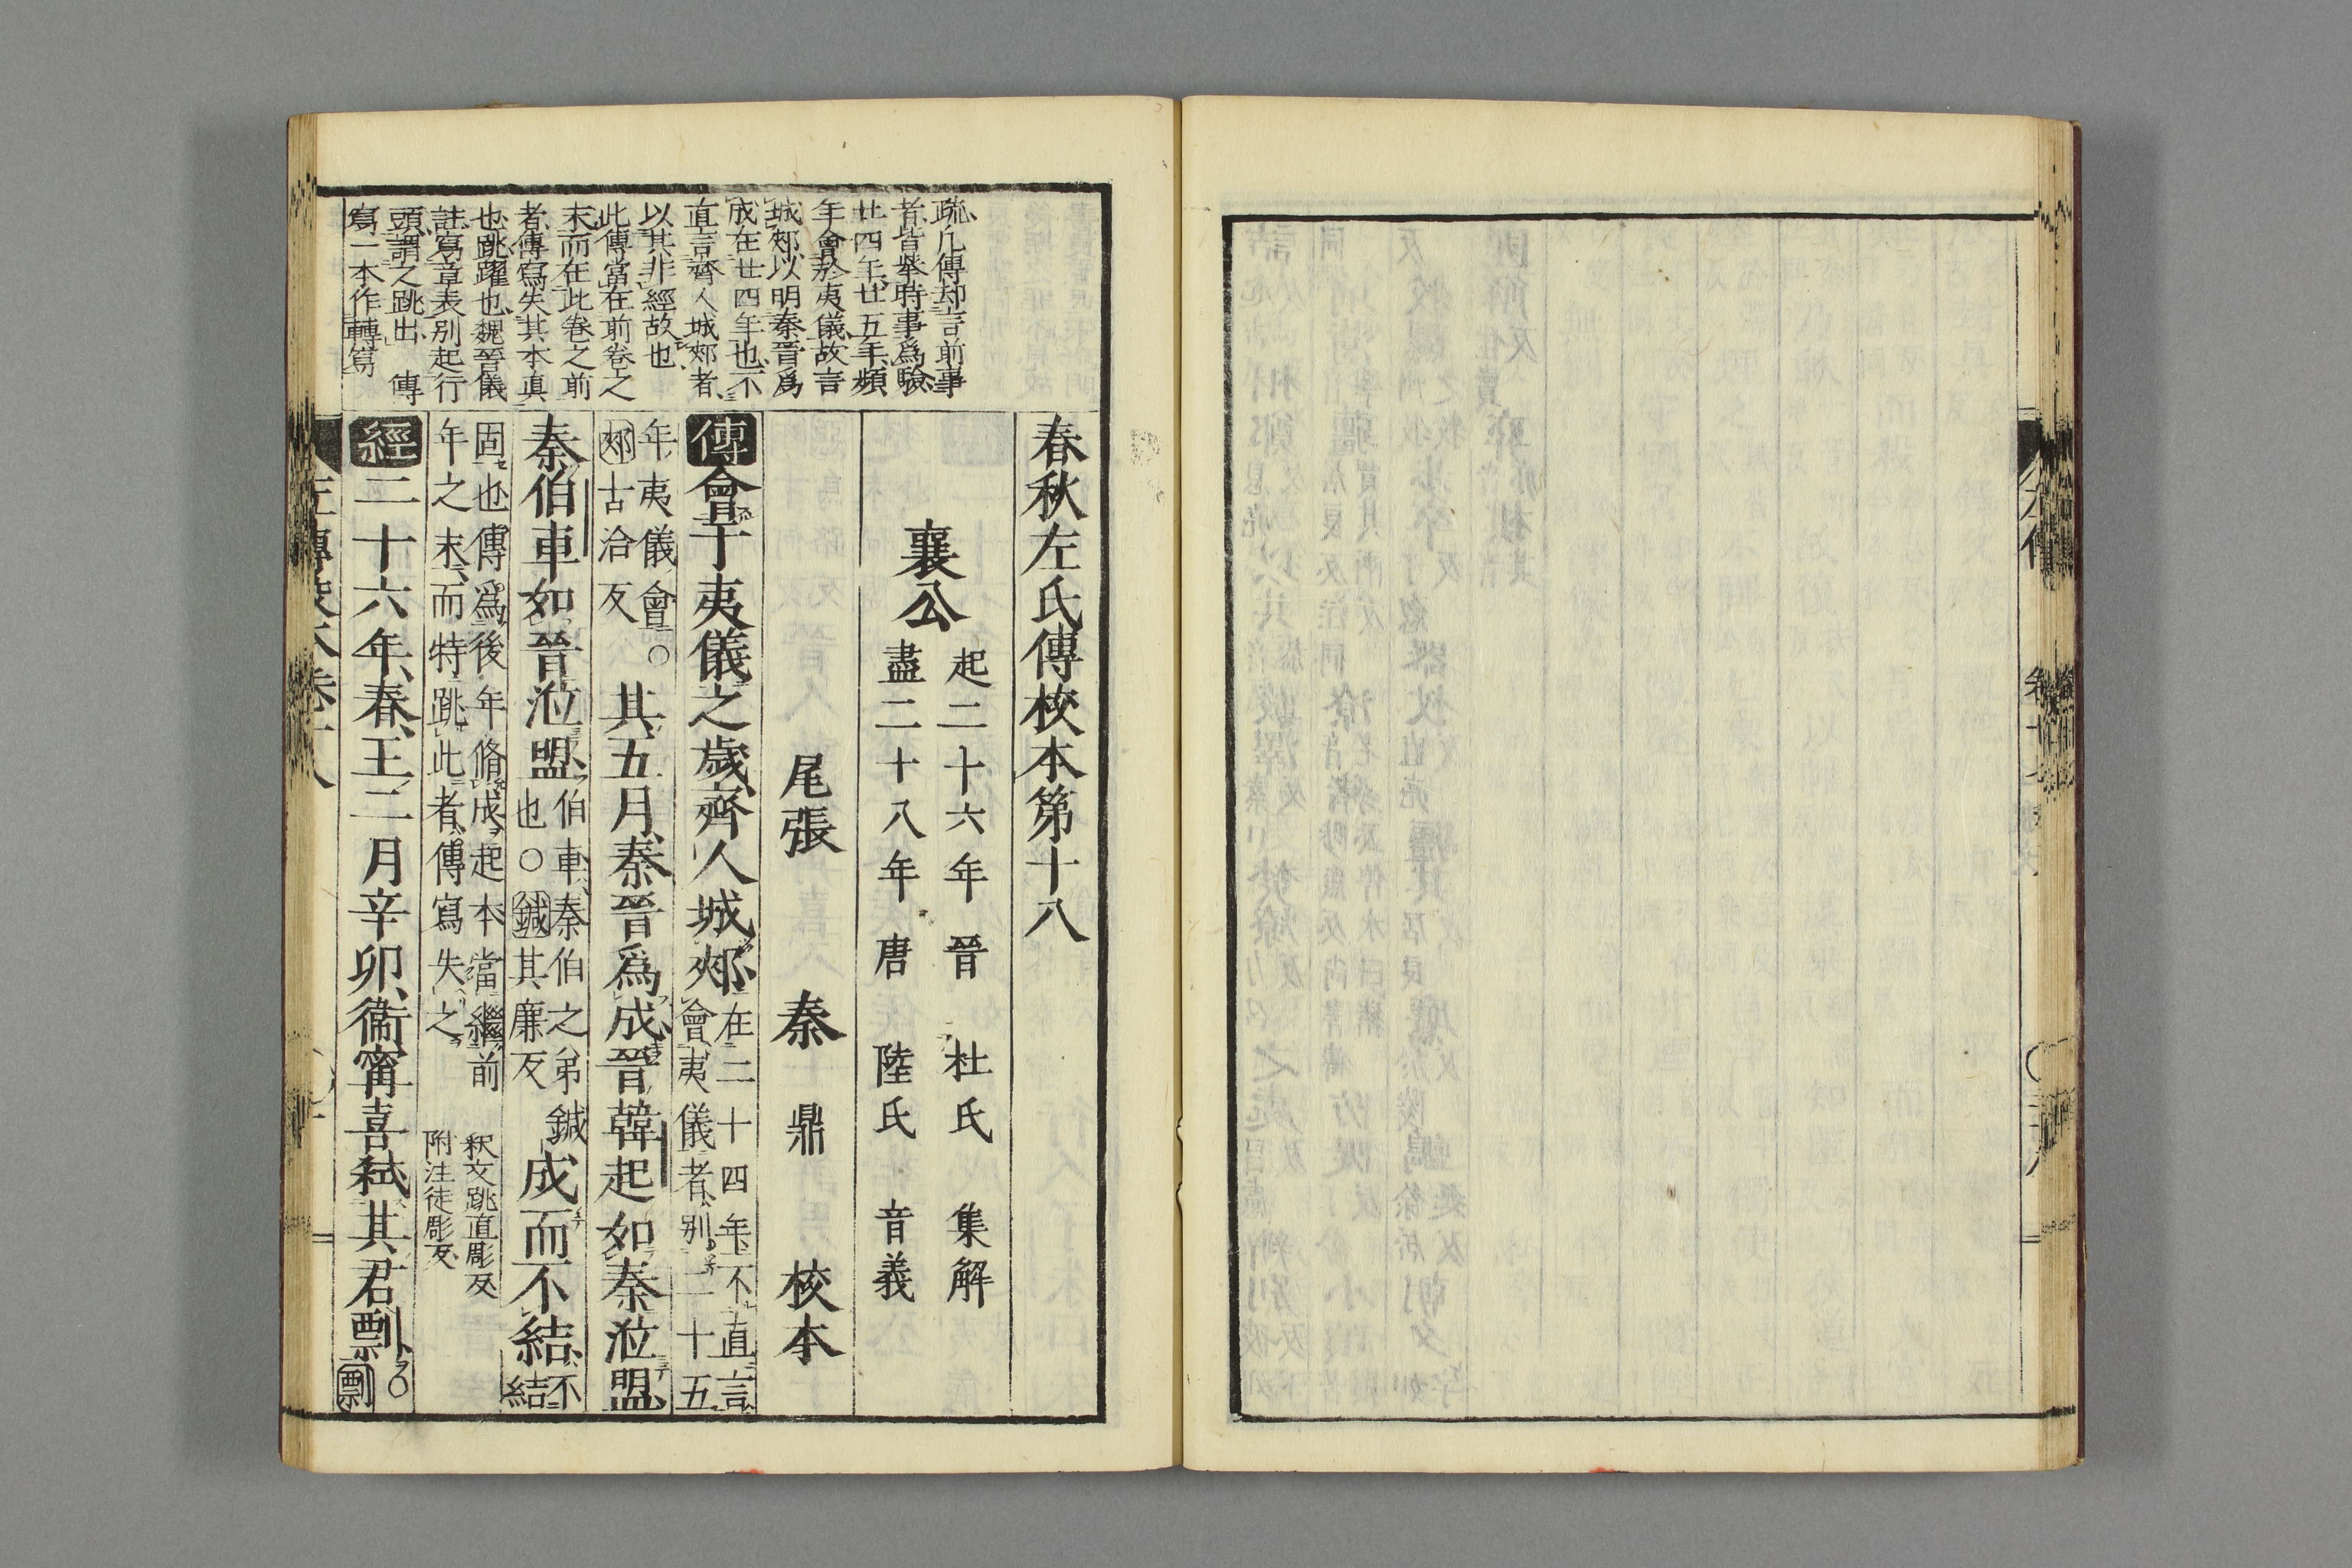 春秋左氏傳校本第十八
襄公
起二十六年 晉 杜氏 集解
盡二十八年 唐 陸氏 音義
尾張 秦 鼎 校本
傳會于夷儀之歲齊人城郟在二十四年不直言
會夷儀者別二十五
年夷儀會○
郟古洽反
其五月秦晉爲成晉韓起如秦涖盟
秦伯車如晉涖盟伯車秦伯之弟鍼
也○鍼其廉反
成而不結不
結
固也傳爲後年脩成起本當繼前
年之末而特跳此者傳寫失之
釈文跳直彫反
附注徒彫反
經二十六年春王二月辛卯衞甯喜弒其君剽○
剽
疏凡傳却言前事
者皆舉時事爲驗
廿四年廿五年頻
年會於夷儀故言
城郟以明秦晉爲
成在廿四年也不
直言齊人城郟者
以其非經故也
此傳當在前卷之
末而在此卷之前
者傳寫失其本真
也跳躍也魏晉儀
註寫章表別起行
頭謂之跳出 傳
寫一本作轉寫